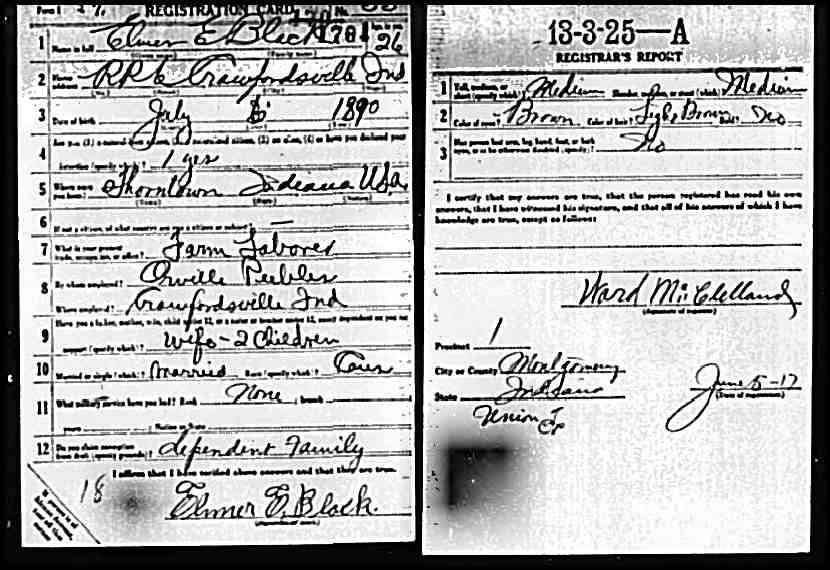 Form 1 REGISTRATION CARD No.
1 Name in full Elmer E. Black Age in yrs 26
2 Home address RR 6 Crawfordsville Ind
3 Date of birth July 1890
Are you (1) a natural-born citizen, (2) a naturalized citizen, (3) an alien, (4) or have you declared your
4 intention (specify which)? 1 yes
5 Where were you born? Thorntown Indeana USA
6 If not a citizen, of what country are you a citizen or subject? —
7 What is your present trade, occupation, or office? Farm Laborer
8 By whom employed? Orville Peebler
Where employed? Crawfordsville Ind
Have you a father, mother, wife, child under 12, or a sister or brother under 12, solely dependent on you for
9 support (specify which)? Wife - 2 Children
10 Married or single (which)? Married Race (specify which)? Caus
11 What military service have you had? Rank None ; branch
years ; Nation or State
12 Do you claim exemption from draft (specify grounds)? dependent Family
I affirm that I have verified above answers and that they are true.
18
Elmer E. Black.
(Signature or mark)
13-3-25-A
REGISTRAR'S REPORT
1 Tall, medium, or short (specify which)? Medium Slender, medium, or stout (which)? Medium
2 Color of eyes? Brown Color of hair? Light Brown Bald? No
3 Has person lost arm, leg, hand, foot, or both eyes, or is he otherwise disabled (specify)? No
I certify that my answers are true, that the person registered has read his own
answers, that I have witnessed his signature, and that all of his answers of which I have
knowledge are true, except as follows:
Ward McClelland
(Signature of registrar)
Precinct 1
City or County Montgomery
State Indiana
Union Tp
June 5-17
(Date of registration)